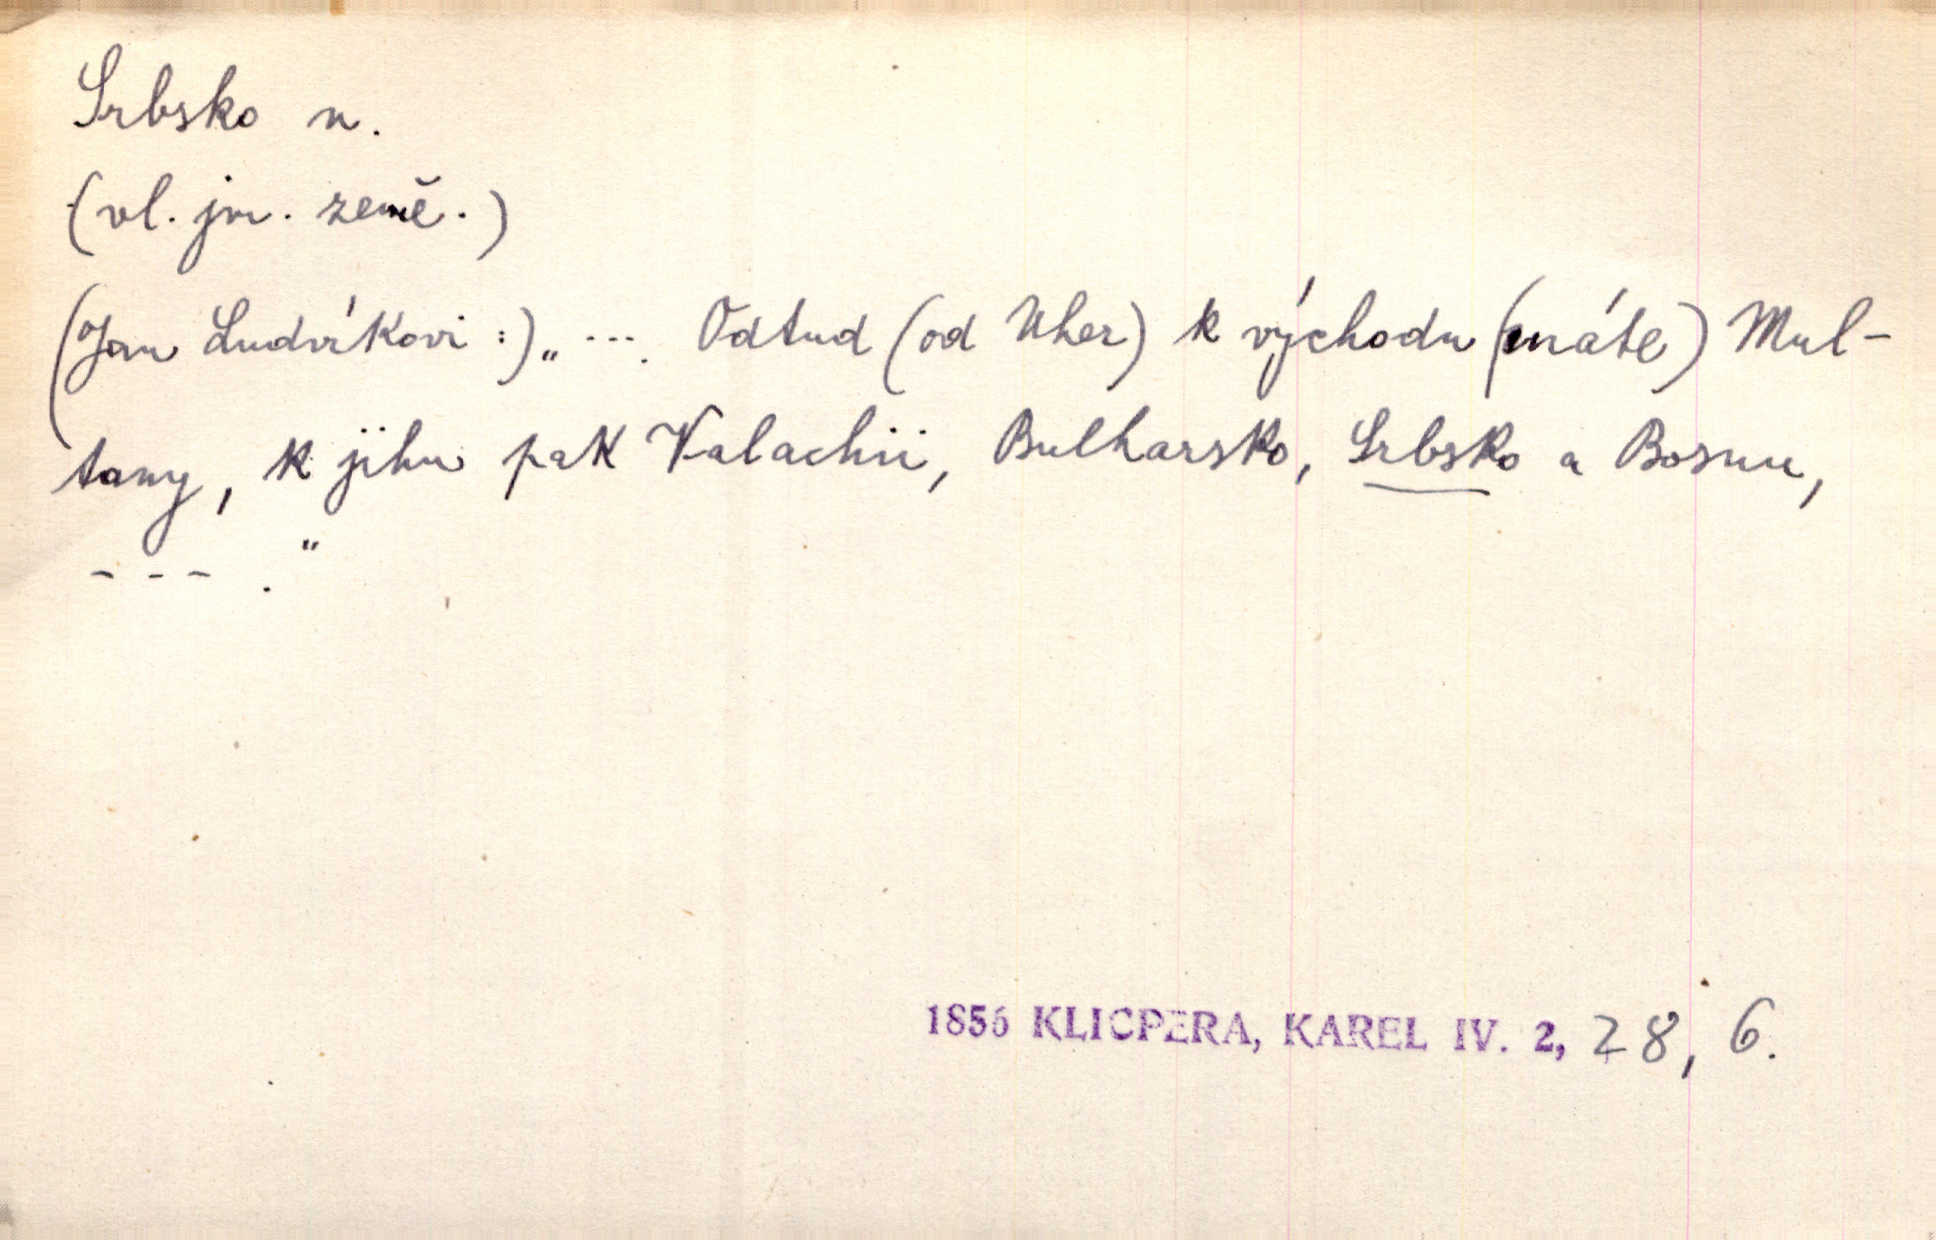 Srbsko n.
(vl. jm. země.)
(Jan Ludvíkovi:) „ --- . Odtud (od Uher) k východu (máte) Mul-
tany, k jihu pak Valachii, Bulharsko, Srbsko a Bosnu,
--- . "
1856 KLICPERA, KAREL IV. 2, 28, 6.